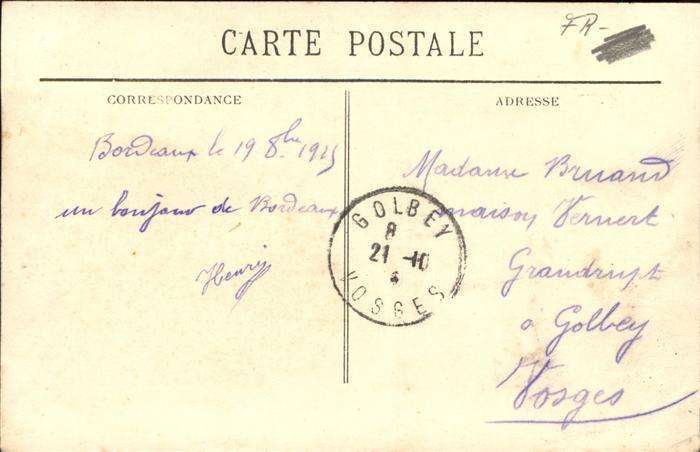 FR-
CARTE POSTALE
CORRESPONDANCE
Bordeaux le 19 8bre 1915
un bonjour de Bordeaux
Henry
ADRESSE
Madame Bruand
maison Vernert
Grandrupt
a Golbey
Vosges
GOLBEY
8
21 -10
VOSGES